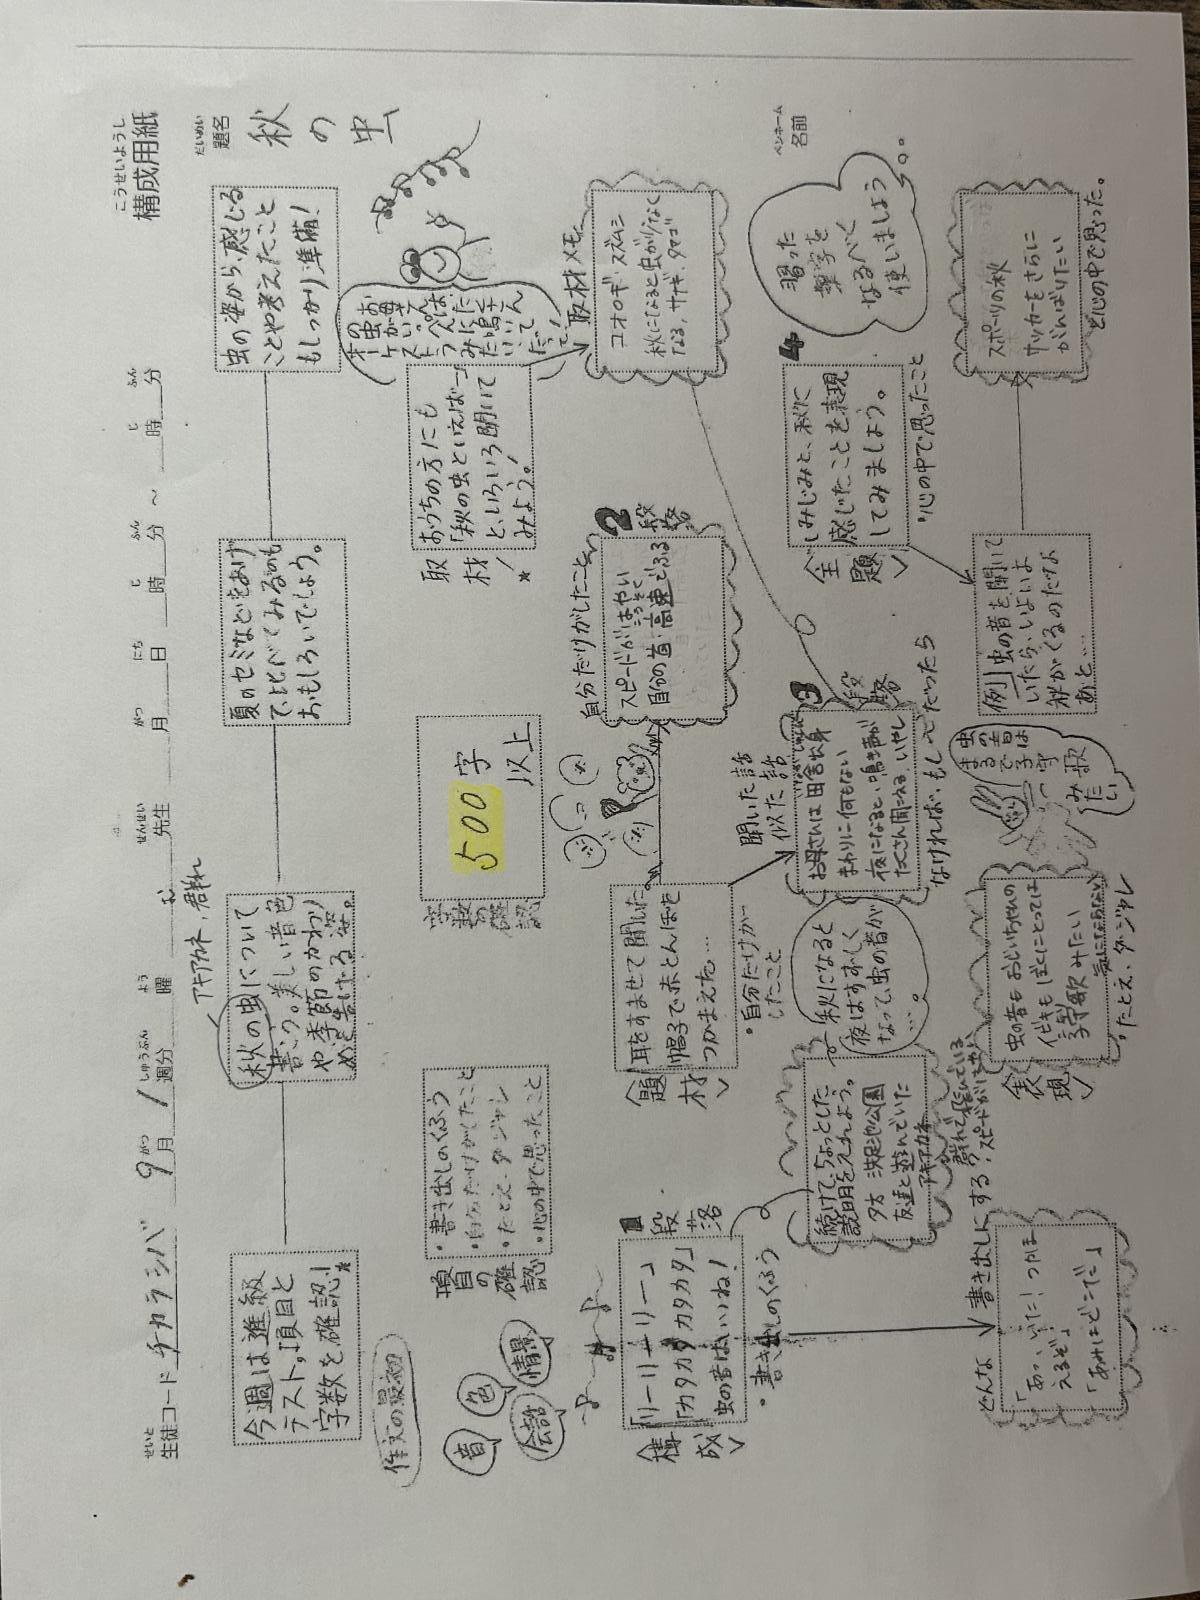 構成用紙
こうせいようし
生徒コード チカラシバ 9月1週分 曜 先生 月 日 時 分 ~ 時 分
題名
だいめい
秋の虫
名前
ペンネーム
今週は進級
テスト、項目と
字数を確認!
秋の虫について
書こう。美しい音色
や、季節のかわり
めを告げる姿。
アキアカネ、群れ
夏のセミなどをあげ
て、比べてみるのも
おもしろいでしょう。
虫の姿から、感じる
ことや考えたこと
もしっかり準備!
作文の最初
音
色
会話
情景
項目の確認
・書き出しのくふう
・自分だけがしたこと
・たとえ・ダジャレ
・心の中で思ったこと
字数の確認
500字
以上
取材!
おうちの方にも
「秋の虫といえば…」
と、いろいろ聞いて
みよう!
取材メモ
コオロギ・スズムシ
秋になると虫が少なく
なる、サナギ、タマゴ
<構成>
1段落
「リーリーリー」
「カタカタカタカタ」
虫の音はいいね!
・書き出しのくふう
続けて、ちょっとした
説明を入れよう。
夕方
友達と遊んでいた
アキアカネ
秋になると
夜はすずしく
なって、虫の音が
…。
どんな書き出しにする?
「あっ、いた!つかま
えるぞ」
「あみはどこでだ」
<題材>
耳をすませて聞いた
帽子で赤とんぼを
つかまえた…
・自分だけが
したこと
2段落
自分だけがしたこと
スピードがはやい
3段落
聞いた話
似た話
お母さんは田舎出身
まわりに何もない
夜になると、鳴き声が
なければ、もし〜だったら
<表現>
虫の音も おじいちゃんの
いびきも ぼくにとっては
子守歌みたい
・たとえ、ダジャレ
虫の音は
まるで子守
歌みたい
4
<全題>
しみじみと、秋に
感じたことを表現
してみましょう。
・心の中で思ったこと
例)虫の音を聞いて
いたら、いよいよ
秋がくるのだなぁ
あと…
スポーツの秋
サッカーをさらに
がんばりたい
と心の中で思った。
習った
漢字を
なるべく
使いましょう